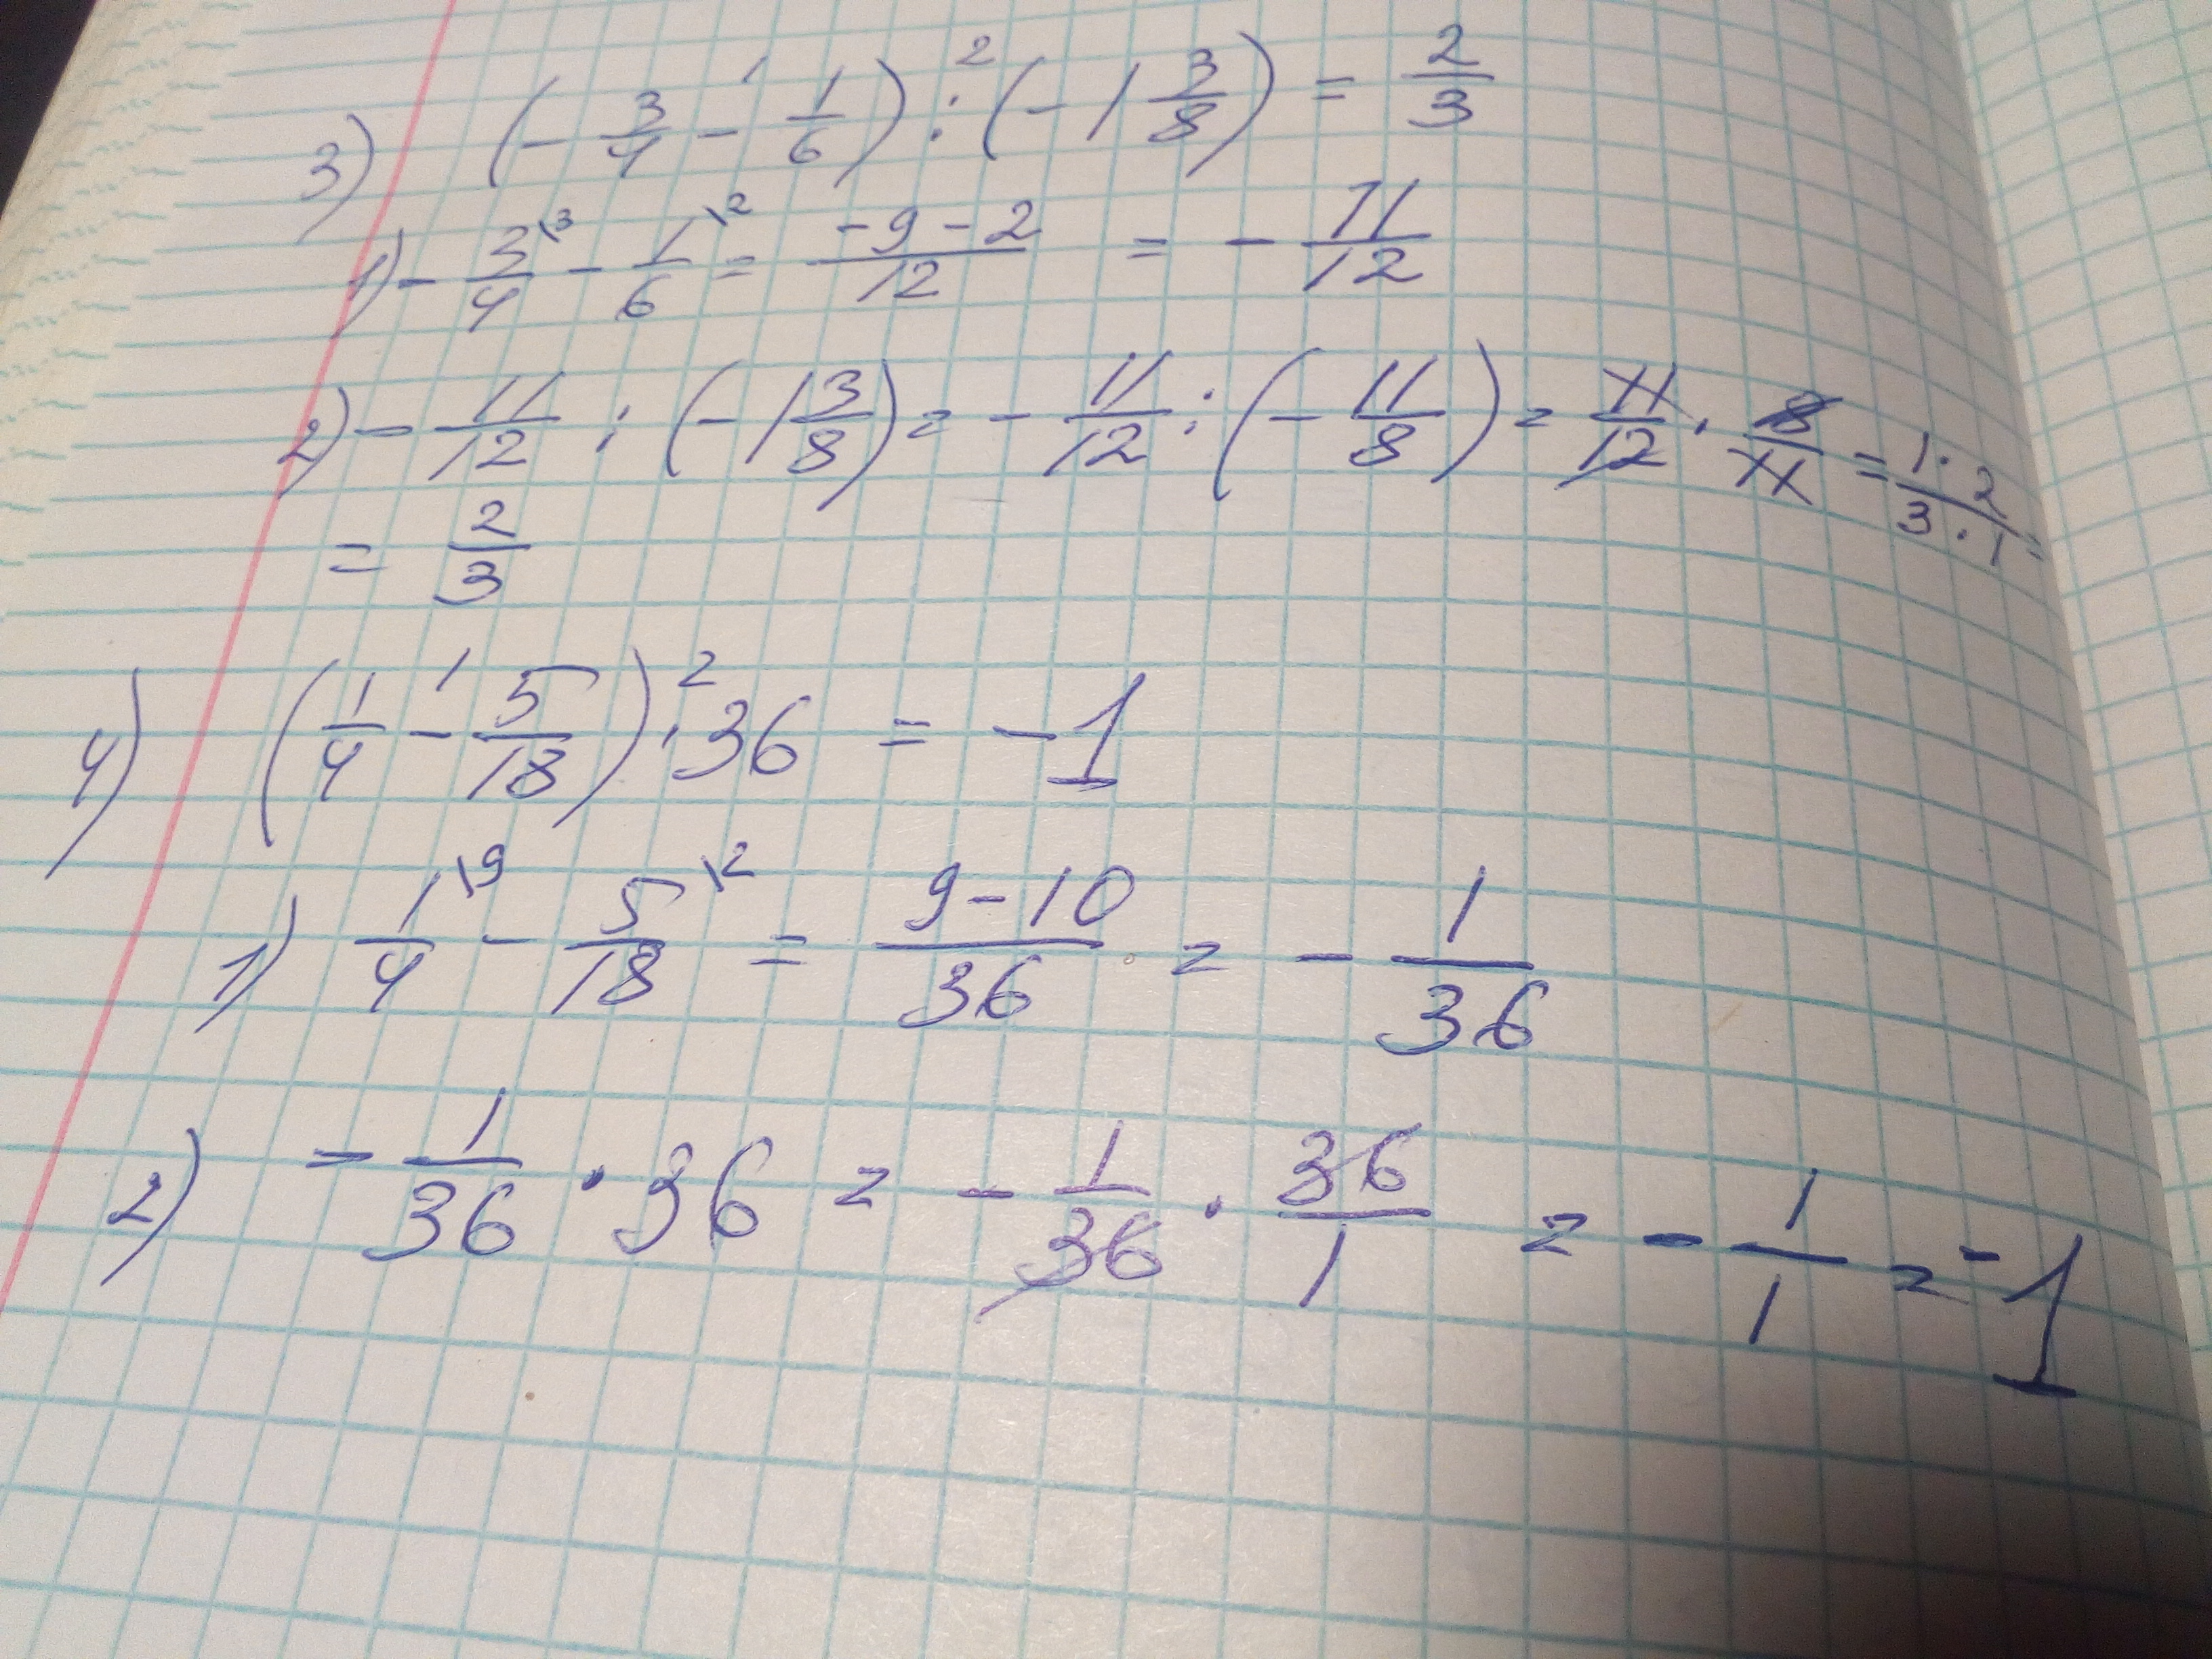 3) (- 3/4 - 1/6) : (- 1 3/8) = 2/3
1 2
1) - 3/4 \3 - 1/6 \2 = (-9-2)/12 = - 11/12
2) - 11/12 : (- 1 3/8) = - 11/12 : (- 11/8) = 11/12 · 8/11 = (1·2)/(3·1) =
= 2/3
4) (1/4 - 5/18) · 36 = -1
1 2
1) 1/4 \9 - 5/18 \2 = (9-10)/36 = - 1/36
2) - 1/36 · 36 = - 1/36 · 36/1 = - 1/1 = -1